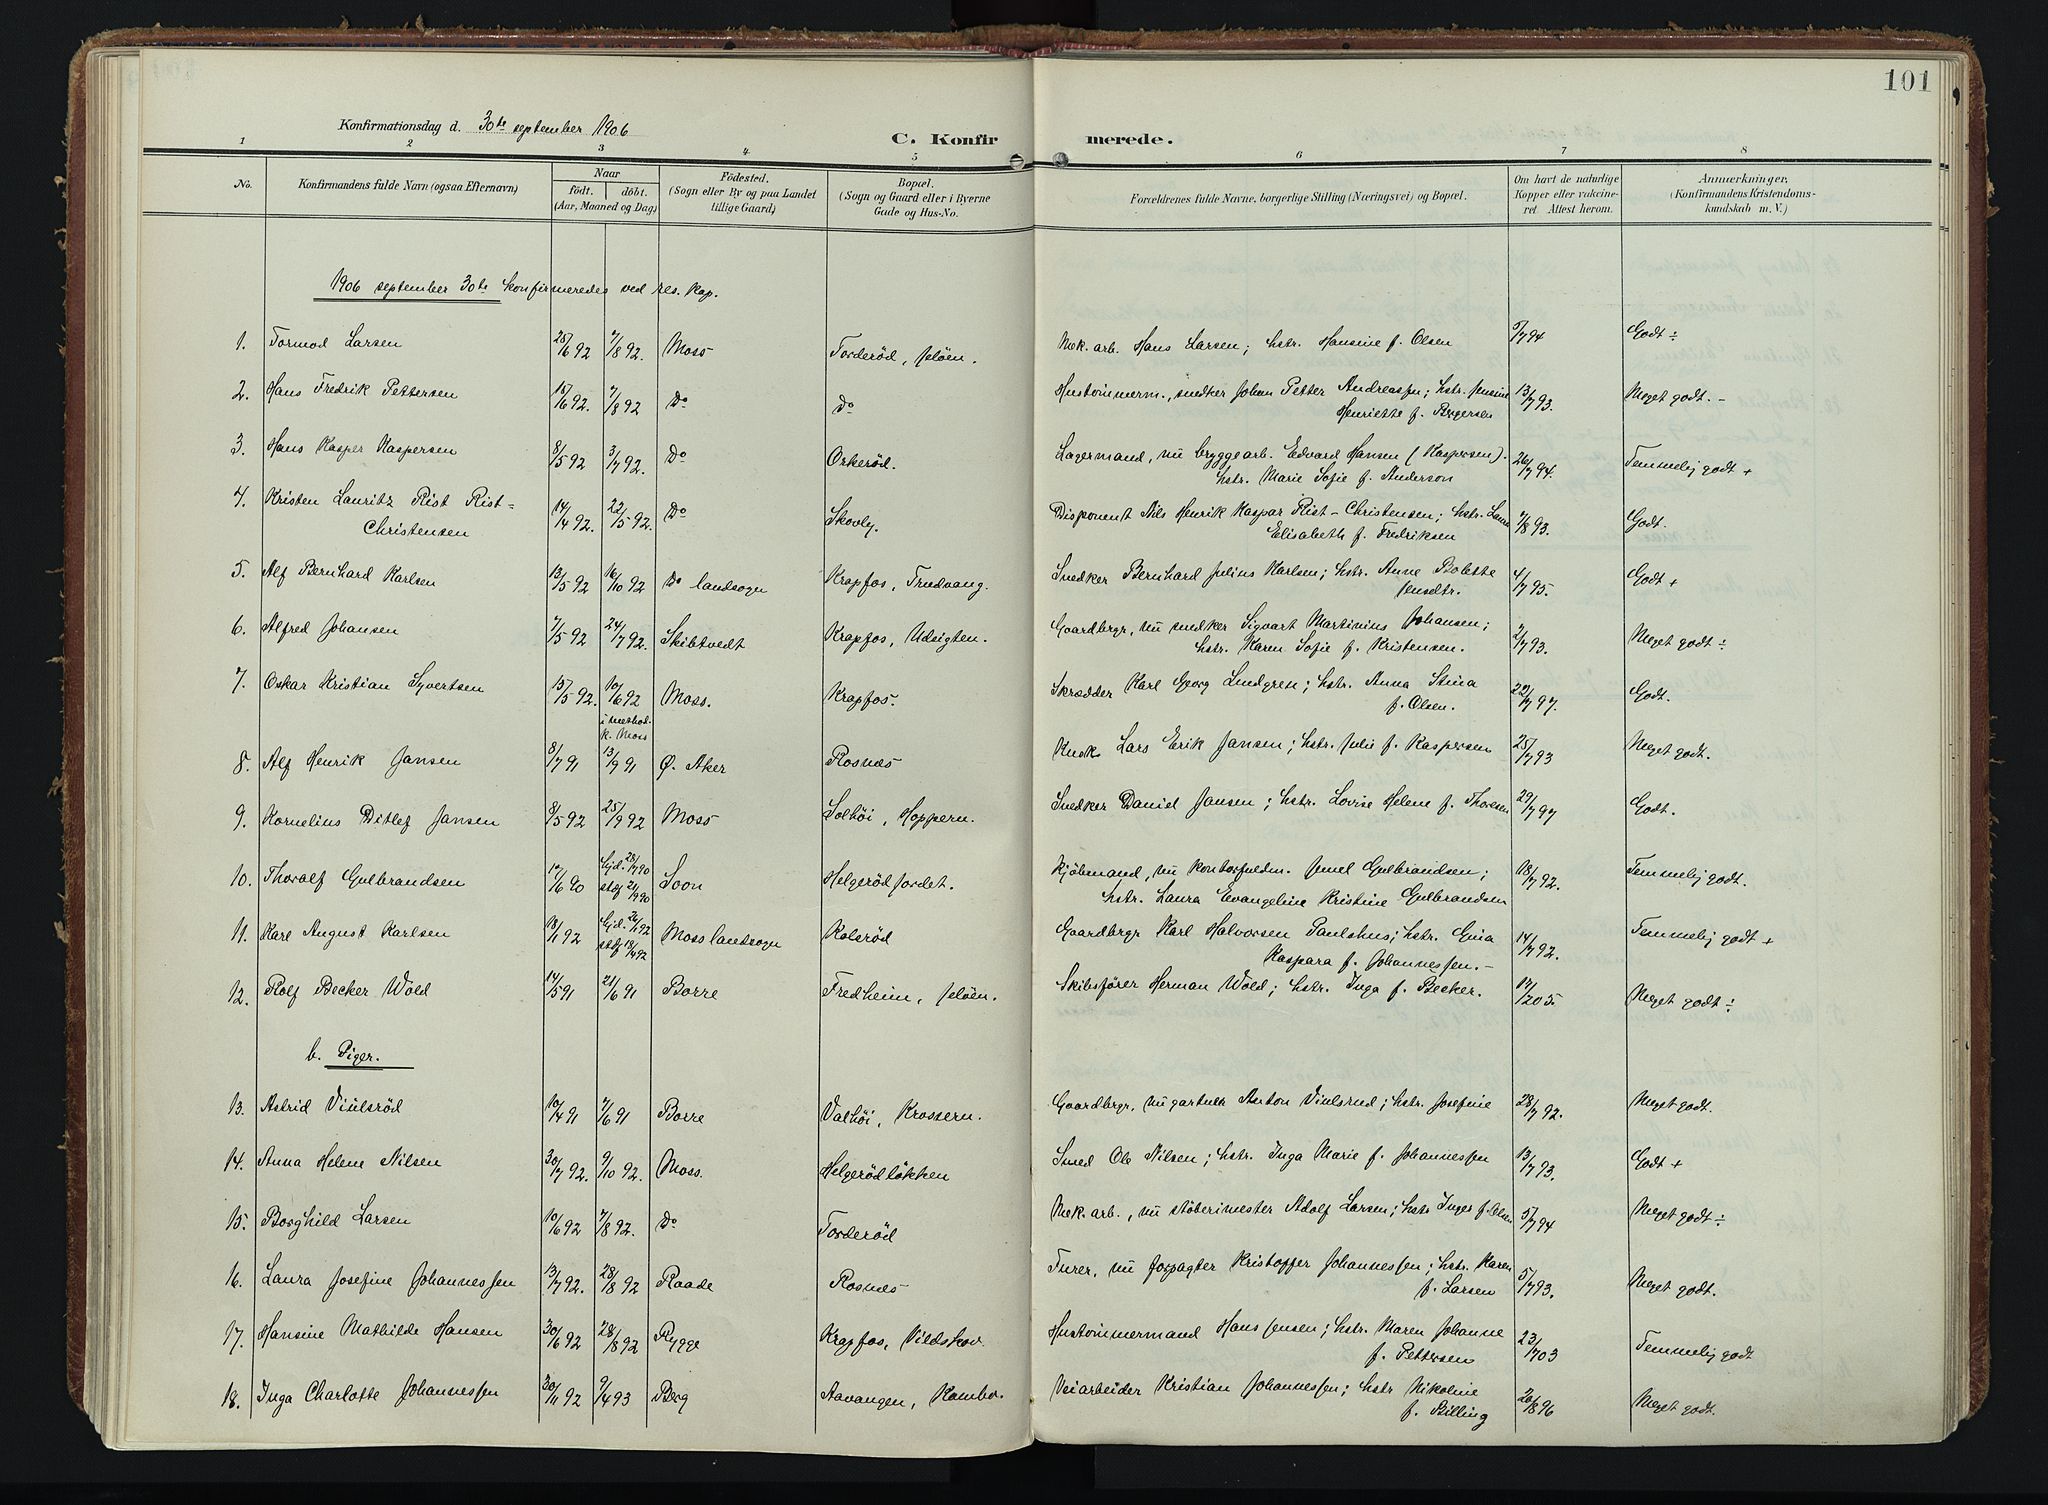 101
Konfirmationsdag d. 30te september 1906
C. Konfirmerede.
1 2 3 4 5 6 7 8
No. Konfirmandens fulde Navn (ogsaa Efternavn) Naar födt. döbt. (Aar, Maaned og Dag) Födested. (Sogn eller By og paa Landet tillige Gaard) Bopæl. (Sogn og Gaard eller i Byerne Gade og Hus-No. Forældrenes fulde Navne, borgerlige Stilling (Næringsvei) og Bopæl. Om havt de naturlige Kopper eller vakcineret. Attest herom. Anmærkninger, (Konfirmandens Kristendomskundskab m. V.)
1906 september 30te konfirmeredes ved res. kap.
1. Tormod Larsen 25/6 92 7/8 92. Moss Torderöd, Jelöen. Mek. arb. Hans Larsen; hstr. Hansine f. Olsen 5/7 94 Godt ÷
2. Hans Fredrik Pettersen 15/6 92. 7/8 92 Do Do Hustömmerm., snedker Johan Petter Andreassen; hstr. Jensine 13/7 93. Meget godt. -
Henriette f. Bergersen
3. Hans Kasper Kaspersen 8/5 92 3/7 92. Do Orkeröd. Lagermand, nu bryggearb. Edvard Hansen (Kaspersen). 26/7 94. Temmelig godt +
hstr. Marie Sofie f. Anderson
4. Kristen Lauritz Rist Rist- 14/4 92. 22/5 92. Do Skovly. Disponent Nils Henrik Kaspar Rist-Christensen; hstr. Laura 7/8 93. Godt.
Christensen Elisabeth f. Fredriksen
5. Alf Bernhard Karlsen 13/5 92 16/10 92 Do landsogn Krapfos, Trudvang. Snedker Bernhard Julius Karlsen; hstr. Anne Bolette 4/7 95. Godt +
Jensdtr.
6. Alfred Johansen 7/5 92 24/7 92. Skibtvedt Krapfos, Udsigten. Gaardbrgr, nu snedker Sigvart Martinius Johansen; 2/7 93. Meget godt ÷
hstr. Karen Sofie f. Kristensen.
7. Oskar Kristian Syvertsen 15/5 92. 10/6 92 Moss. Krapfos. Skrædder Karl Georg Lundgren; hstr. Anna Stina 22/7 97. Godt.
i methodk. Moss f. Olsen.
8. Alf Henrik Jansen 8/7 91 13/9 91 Ø. Aker Rosnæs Kusk Lars Erik Jansen; hstr. Julie f. Kaspersen 25/7 93 Meget godt.
9. Kornelius Ditlef Jansen 8/5 92 25/9 92 Moss Solhöi, Hoppern. Snedker Daniel Jansen; hstr. Lovise Helene f. Thoresen 29/7 97 Godt.
10. Thoralf Gulbrandsen 17/6 90 hjd. 28/7 90 stgf 21/9 90 Soon Helgerödjordet. Kjöbmand, nu kontorfuldm. Juul Gulbrandsen; 18/7 92. Temmelig godt.
hstr. Laura Evangeline Kristine Gulbrandsen
11. Karl August Karlsen 18/1 92 hjd. 26/1 92 stgf 18/4 92 Moss landsogn Rolsröd Gaardbrgr Karl Halvorsen Paulshus; hstr. Gina 14/7 92. Temmelig godt +
Kaspara f. Johannessen. -
12. Rolf Becker Wöld 14/5 91 21/6 91 Borre Fredheim, Jelöen. Skibsfører Herman Wöld; hstr. Inga f. Becker. 17/2 05. Meget godt ÷
b. Piger.
13. Astrid Viulsröd 10/4 91 7/6 91 Borre Valhöi, Krossern. Gaardbrgr, nu gartner Anton Viulsrud; hstr. Josefine 28/7 92. Meget godt.
14. Anna Helene Nilsen 30/7 92. 9/10 92. Moss. Helgerödlökken Smed Ole Nilsen; hstr. Inga Marie f. Johannessen 13/7 93. Godt +
15. Borghild Larsen 10/6 92 7/8 92. Do Torderöd Mek. arb., nu stöberimester Adolf Larsen; hstr Inger f. Olsen 5/7 94 Meget godt ÷
16. Laura Josefine Johannessen 13/7 92. 28/8 92 Raade Rosnæs Turer, nu forpagter Kristoffer Johannessen; hstr. Karen 5/7 93. Meget godt.
f. Larsen
17. Hansine Mathilde Hansen 30/6 92 28/8 92 Rygge Krapfos, Vildskov. Hustömmermand Hans Jensen; hstr. Maren Johanne 23/7 03 Temmelig godt
f. Pettersen
18. Inga Charlotte Johannessen 30/11 92 9/4 93 Berg Aavangen, Kambo. Veiarbeider Kristian Johannessen; hstr Nikoline 26/8 96 Meget godt.
f. Billing